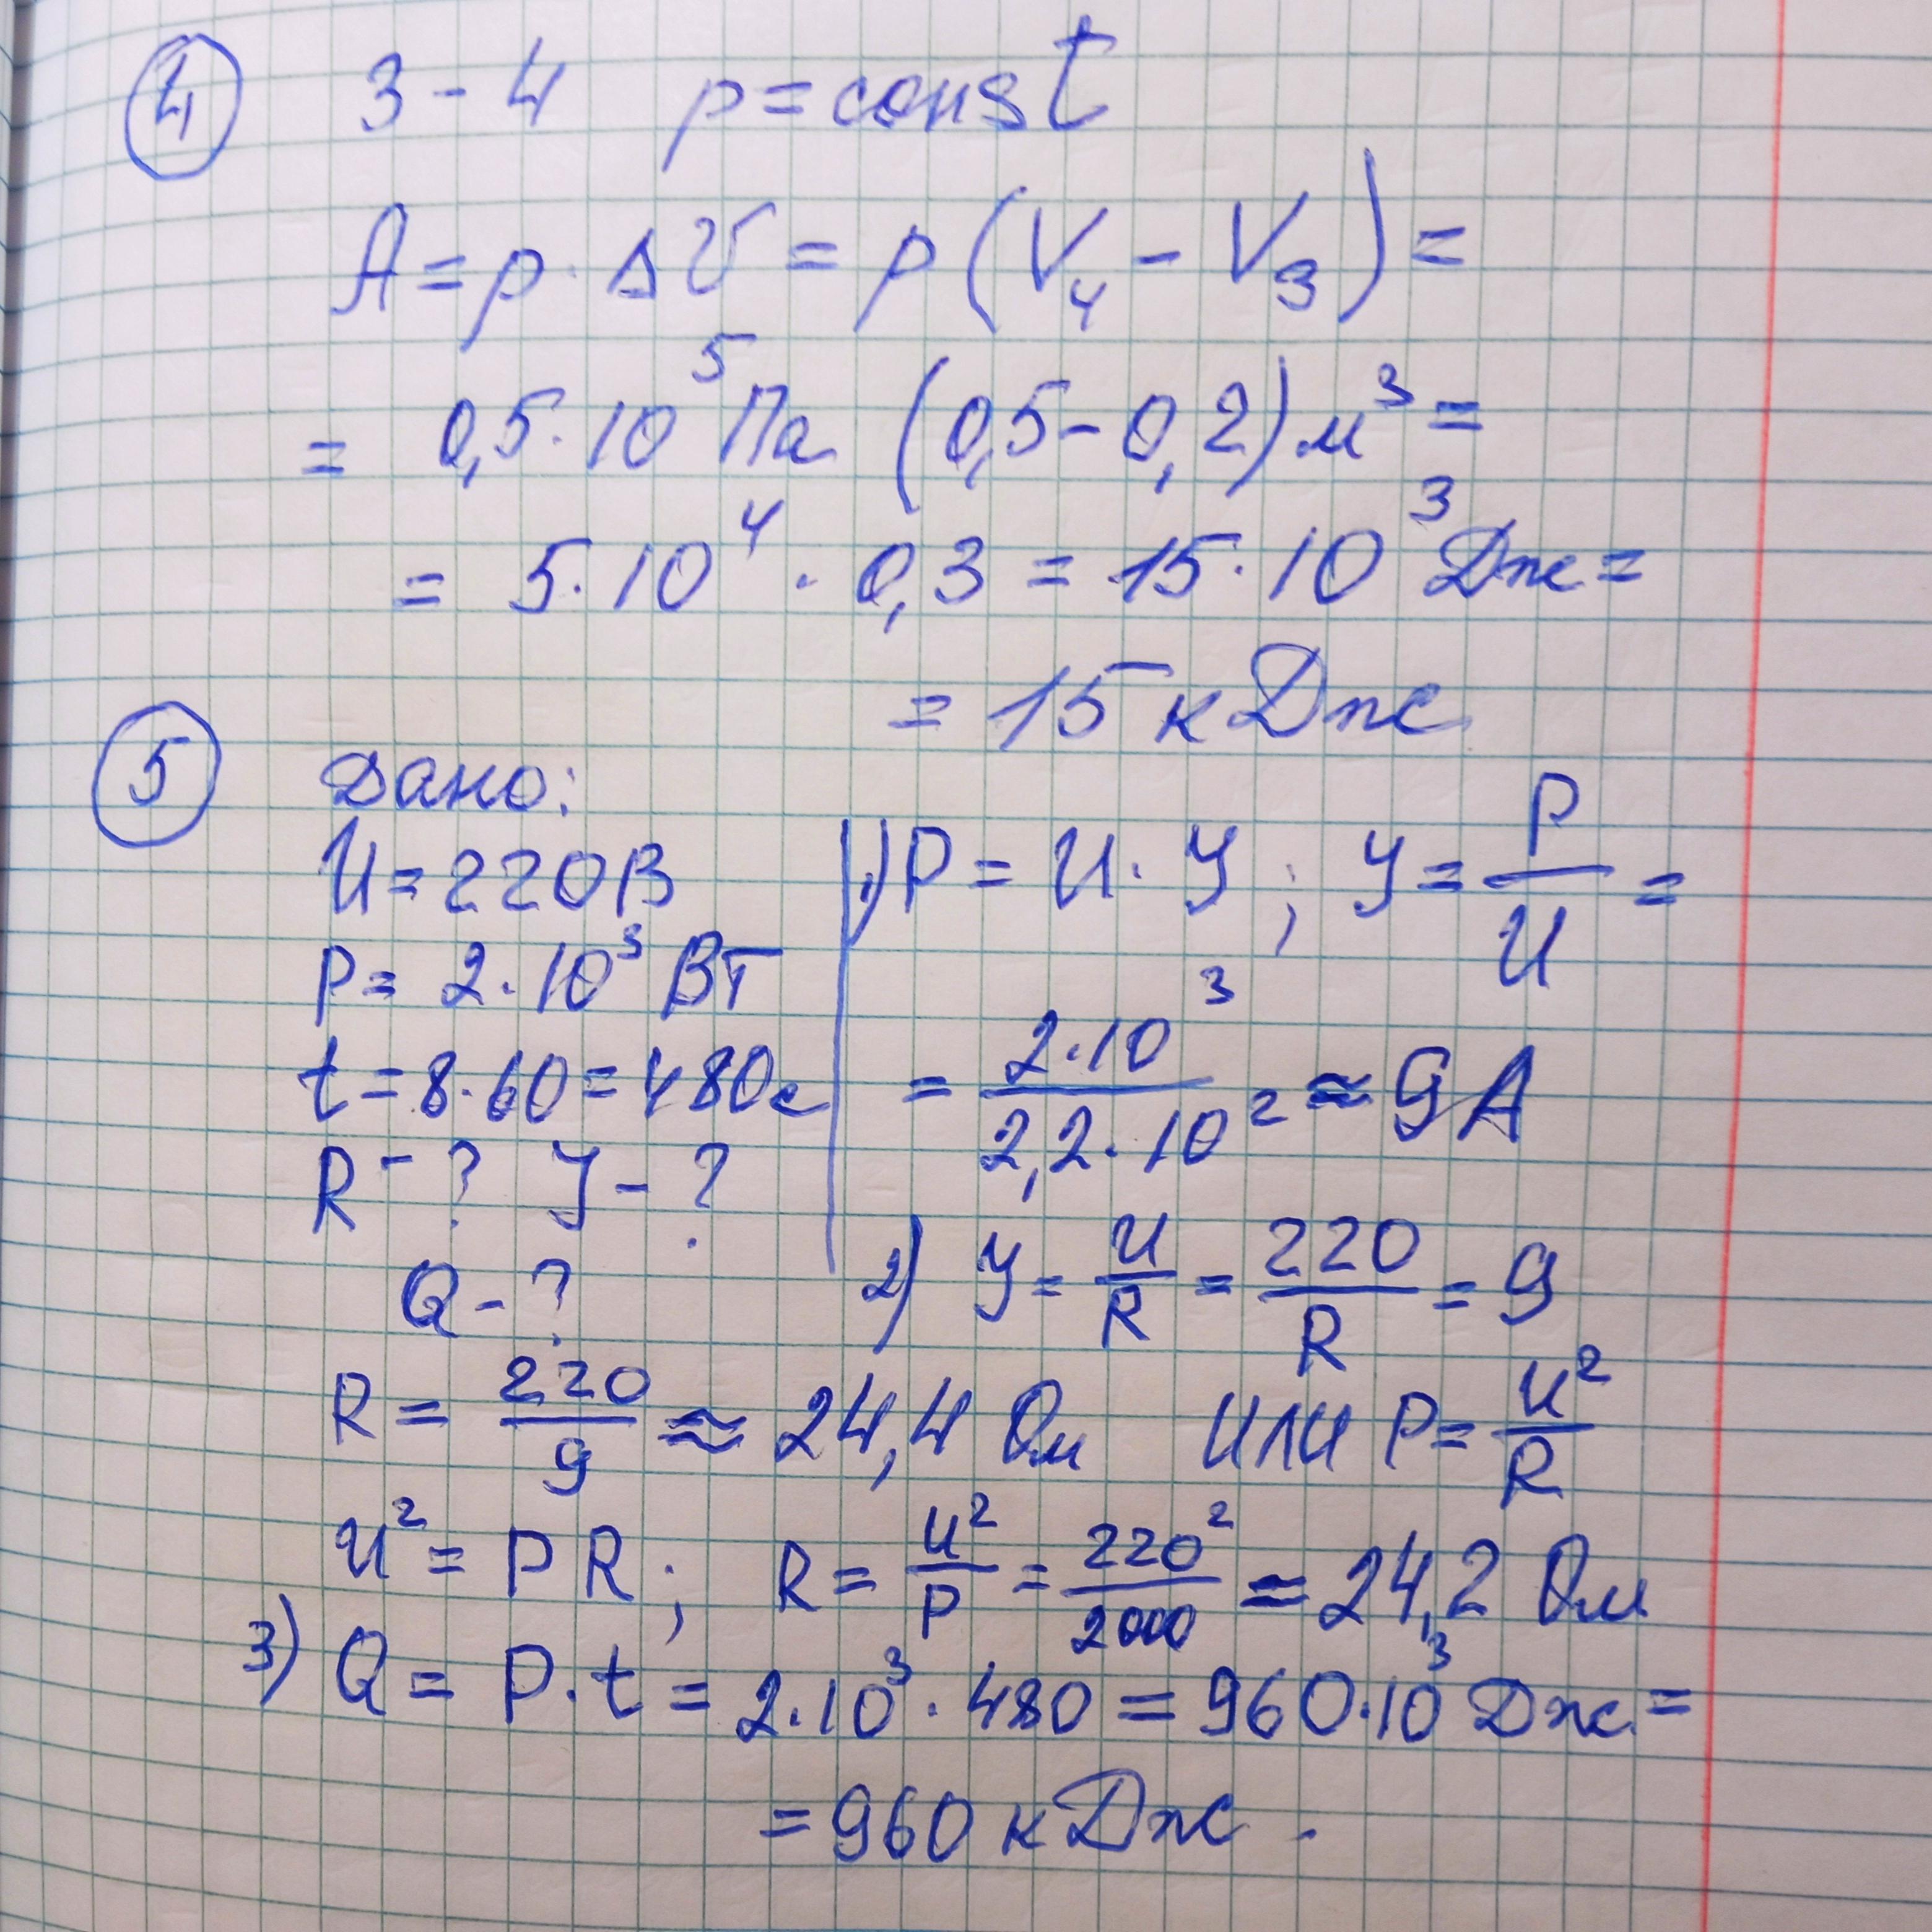 ④ 3-4 p=const
A=p·ΔV=p(V₄-V₃)=
= 0,5·10⁵Па (0,5-0,2)м³=
= 5·10⁴·0,3=15·10³Дж=
= 15 кДж
⑤ Дано:
U=220В
P=2·10³ Вт
t=8·60=480с
R-? У-?
Q-?
1) P=U·У; У=P/U=
= 2·10³/2,2·10² ≈ 9А
2) У=U/R=220/R=9
R=220/9≈24,4 Ом или P=U²/R
U²=PR; R=U²/P=220²/2000≈24,2 Ом
3) Q=P·t=2·10³·480=960·10³Дж=
=960 кДж.